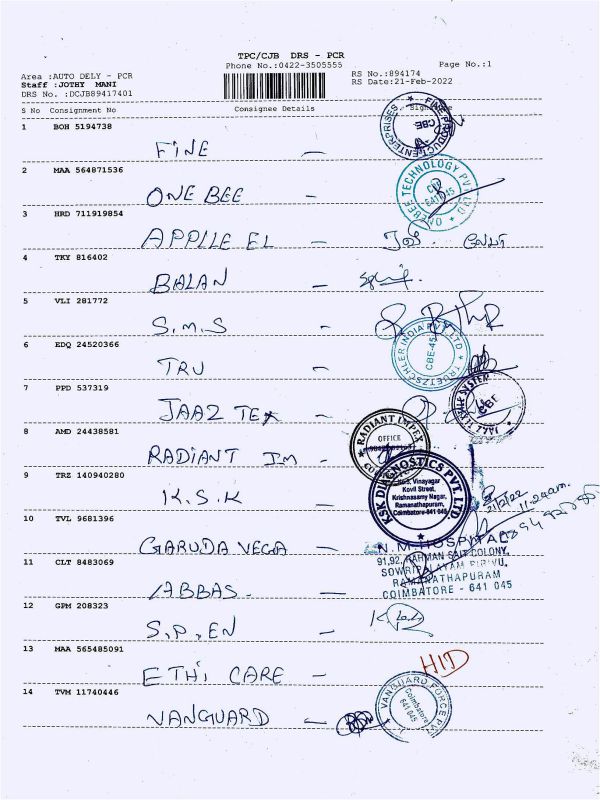 TPC/CJB DRS - PCR
Phone No.:0422-3505555
Page No.:1
Area :AUTO DELY - PCR
RS No.:894174
Staff :JOTHY MANI
RS Date:21-Feb-2022
DRS No. :DCJB89417401
S No Consignment No Consignee Details
1 BOH 5194738
FINE —
FINE PRODUCT ENTERPRISES CBE
2 MAA 564871536
ONE BEE -
BEE TECHNOLOGY PVT LTD
3 HRD 711919854
APPLLE EL -
4 TKY 816402
BALAN -
5 VLI 281772
S.M.S -
6 EDQ 24520366
TRU -
TRUETZSCHLER INDIA PVT LTD CBE-45
7 PPD 537319
JAAZ TEX -
8 AMD 24438581
RADIANT IM -
RADIANT IMPEX
OFFICE
9 TRZ 140940280
K.S.K -
KSK DIAGNOSTICS PVT. LTD
No.5, Vinayagar
Kovil Street,
Krishnasamy Nagar,
Ramanathapuram,
Coimbatore-641 045
21/2/22
11.20am
10 TVL 9681396
GARUDA VEGA -
11 CLT 8483069
N.M. HOSPITAL
91,92, RAHMAN SAIT COLONY,
SOWRIPALAYAM PIRIVU,
RAMANATHAPURAM
COIMBATORE - 641 045
ABBAS. -
12 GPM 208323
S.P.EN -
13 MAA 565485091
ETHI CARE -
HID
14 TVM 11740446
VANGUARD -
VANGUARD FORCE
Coimbatore
641 045